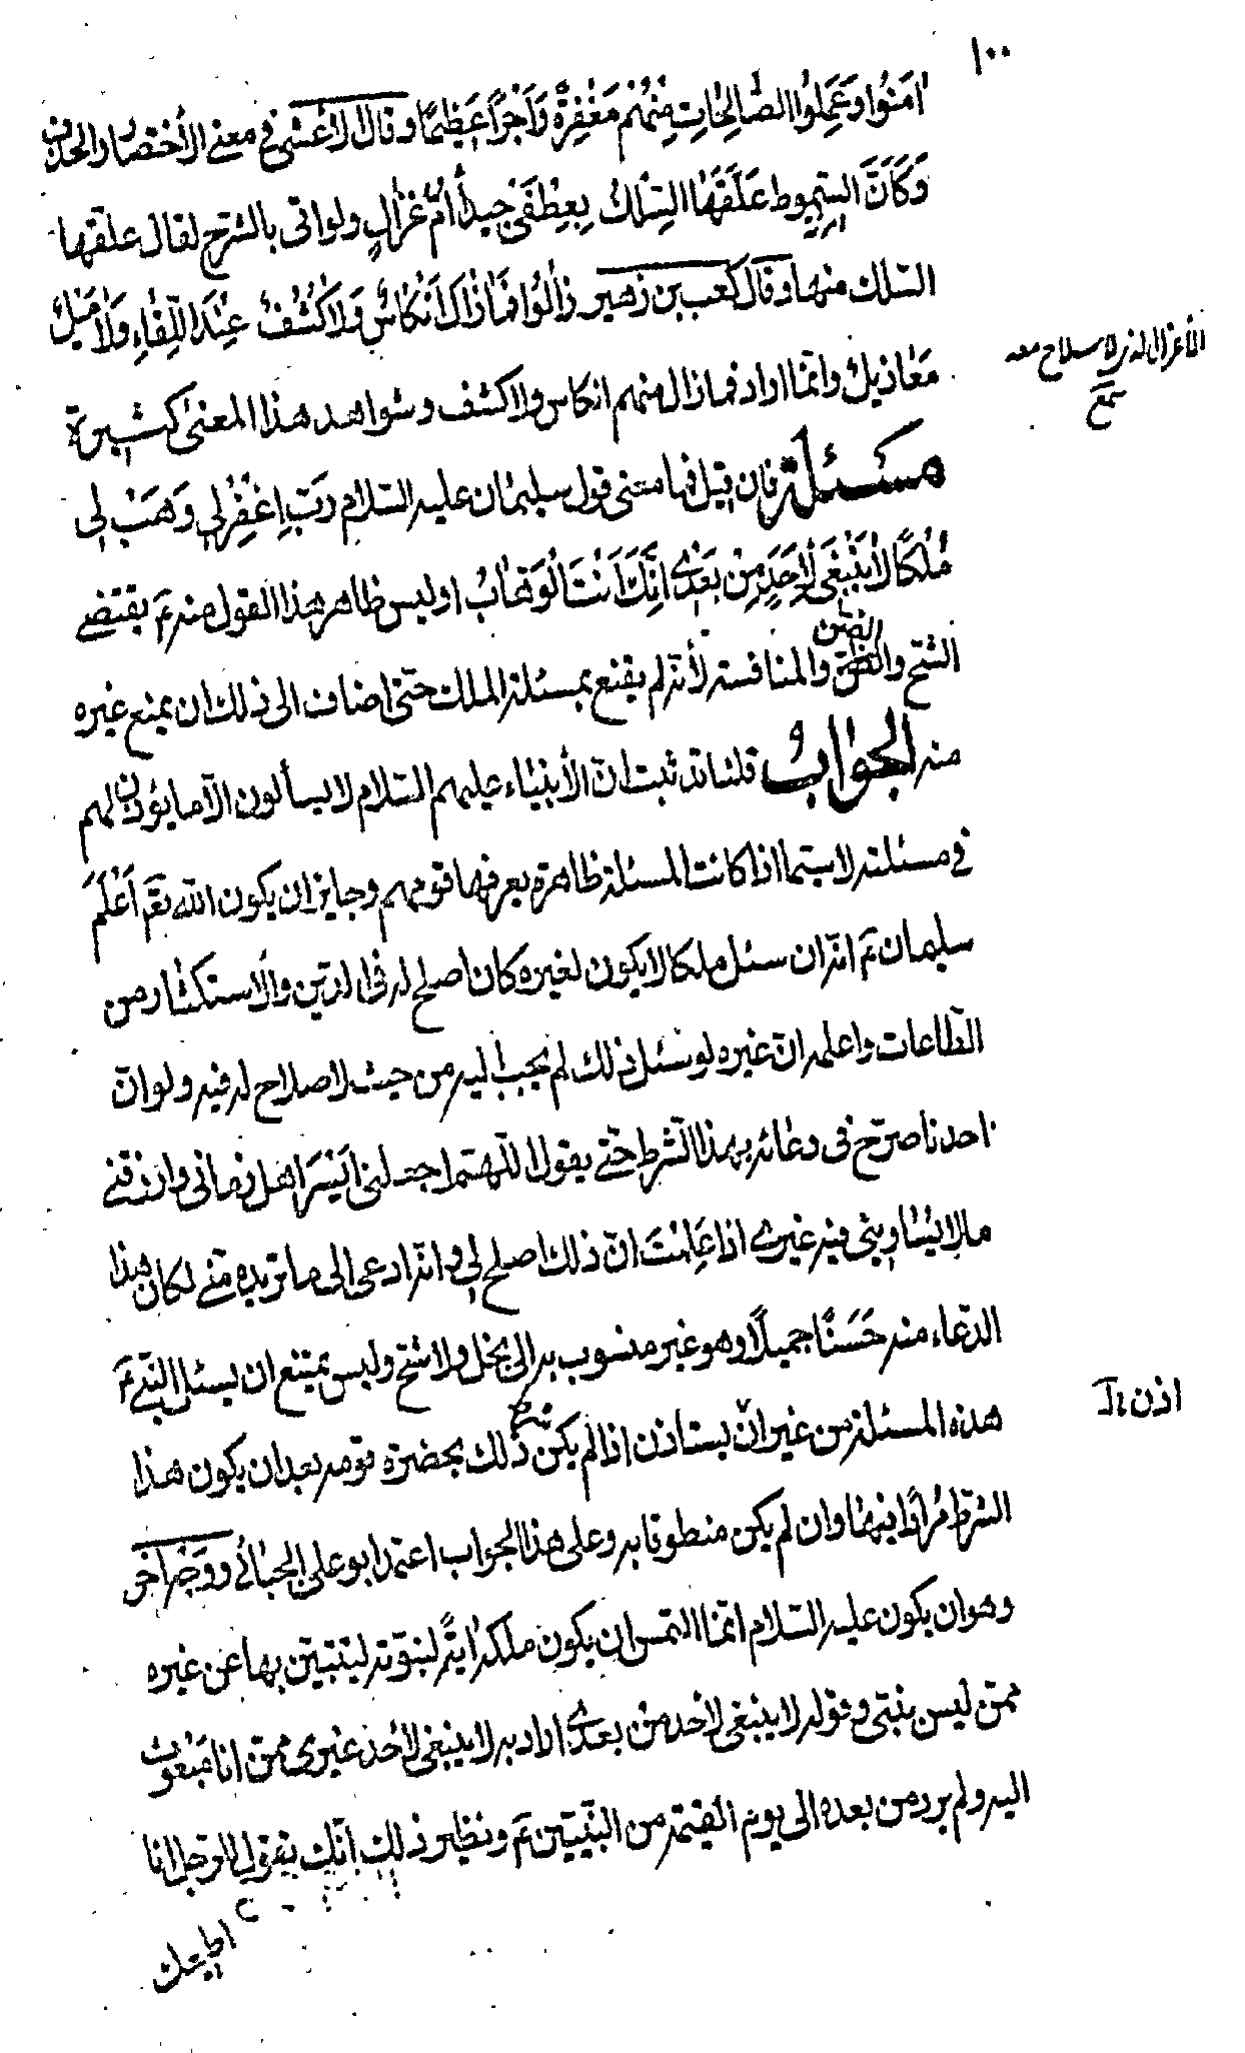 ١٠٠
اٰمَنُوا وَعَمِلُوا الصّٰالِحٰاتِ مِنْهُمْ مَغْفِرَةً وَاَجْرًا عَظِيمًا وقال الأعشى في معنى الأختصار والحذف
وَكَاَنَّ السُّمُوطَ عَلَّقَهٰا السِّلْكُ بِعِطْفَىْ جَيْدٰاءَ اُمِّ غَزٰالٍ ولو اتى بالشرح لقال علقها
السّلك منها وقال كعب بن زهير زٰالُوا فَمٰا زٰالَ اَنْكٰاسٌ وَلاٰ كُشُفٌ عِنْدَ اللِّقٰاءِ وَلاٰ مِيْلٌ
مَعٰازِيلُ وانّما اراد فما زال منهم انكاس ولا كشف وشواهد هذا المعنى كثيرة
الأعزال لذى لا سلاح معه
مسئلة فان قيل فما معنى قول سليمان عليه السّلام رَبِّ اغْفِرْ لِي وَهَبْ لِى
مُلْكًا لاٰ يَنْبَغِى لِاَحَدٍ مِنْ بَعْدِى اِنَّكَ اَنْتَ الْوَهّٰابُ اوليس ظاهر هذا القول منه ع يقتضى
الشح والضنّ والمنافسة لأنّه لم يقنع بمسئلة الملك حتى اضاف الى ذلك ان يمنع غيره
منه الجواب قلنا قد ثبت انّ الأنبياء عليهم السّلام لا يسألون الّا ما يؤذن لهم
فى مسئلته لا سيّما اذا كانت المسئلة ظاهرة يعرفها قومهم وجايز ان يكون الله تعَ اَعْلَمَ
سليمان ع انّه ان سئل ملكا لا يكون لغيره كان اصلح له فى الدّين والأستكثار من
الطّاعات واعلمه انّ غيره لو سئل ذلك لم يجب اليه من حيث لا صلاح له فيه ولو انّ
احدنا صرّح فى دعائه بهذا الشّرط حتّى يقول اللّهمّ اجعلنى اَيْسَرَ اهل زمانى وارزقنى
مالا يُسٰاوِينى فيه غيرى اذا عَلِمْتَ انّ ذلك اصلح لى وانّه ادعى الى ما تريده منّى لكان هذا
الدّعاء منه حَسَنًا جميلًا وهو غير منسوب به الى بخل ولا شحّ وليس يمتنع ان يسئل النّبىّ ع
هذه المسئلة من غير ان يستاذن اذا لم يكن ذلك بحضرة قومه بعد ان يكون هذا
اذن
الشرط مُرٰادًا فيها وان لم يكن منطوقا به وعلى هذا الجواب اعتمد ابو على الجبائى ووجه اخر
وهو ان يكون عليه السّلام انّما التمس ان يكون ملكه اٰيةً لنبوّته ليتبيّن بها عن غيره
ممّن ليس بنبىّ وقوله لا ينبغى لاحد من بعدى اراد به لا ينبغى لأحد غيرى ممّن انا مَبْعُوث
اليه ولم يرد من بعده الى يوم القيمة من النّبيّين ع ونظير ذلك انّك تقول للرّجل انا
اطيعك